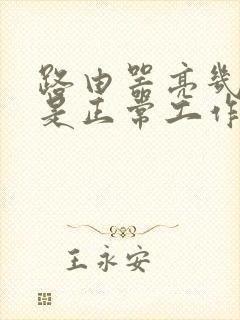 路由器亮几
是正常工作
王永安